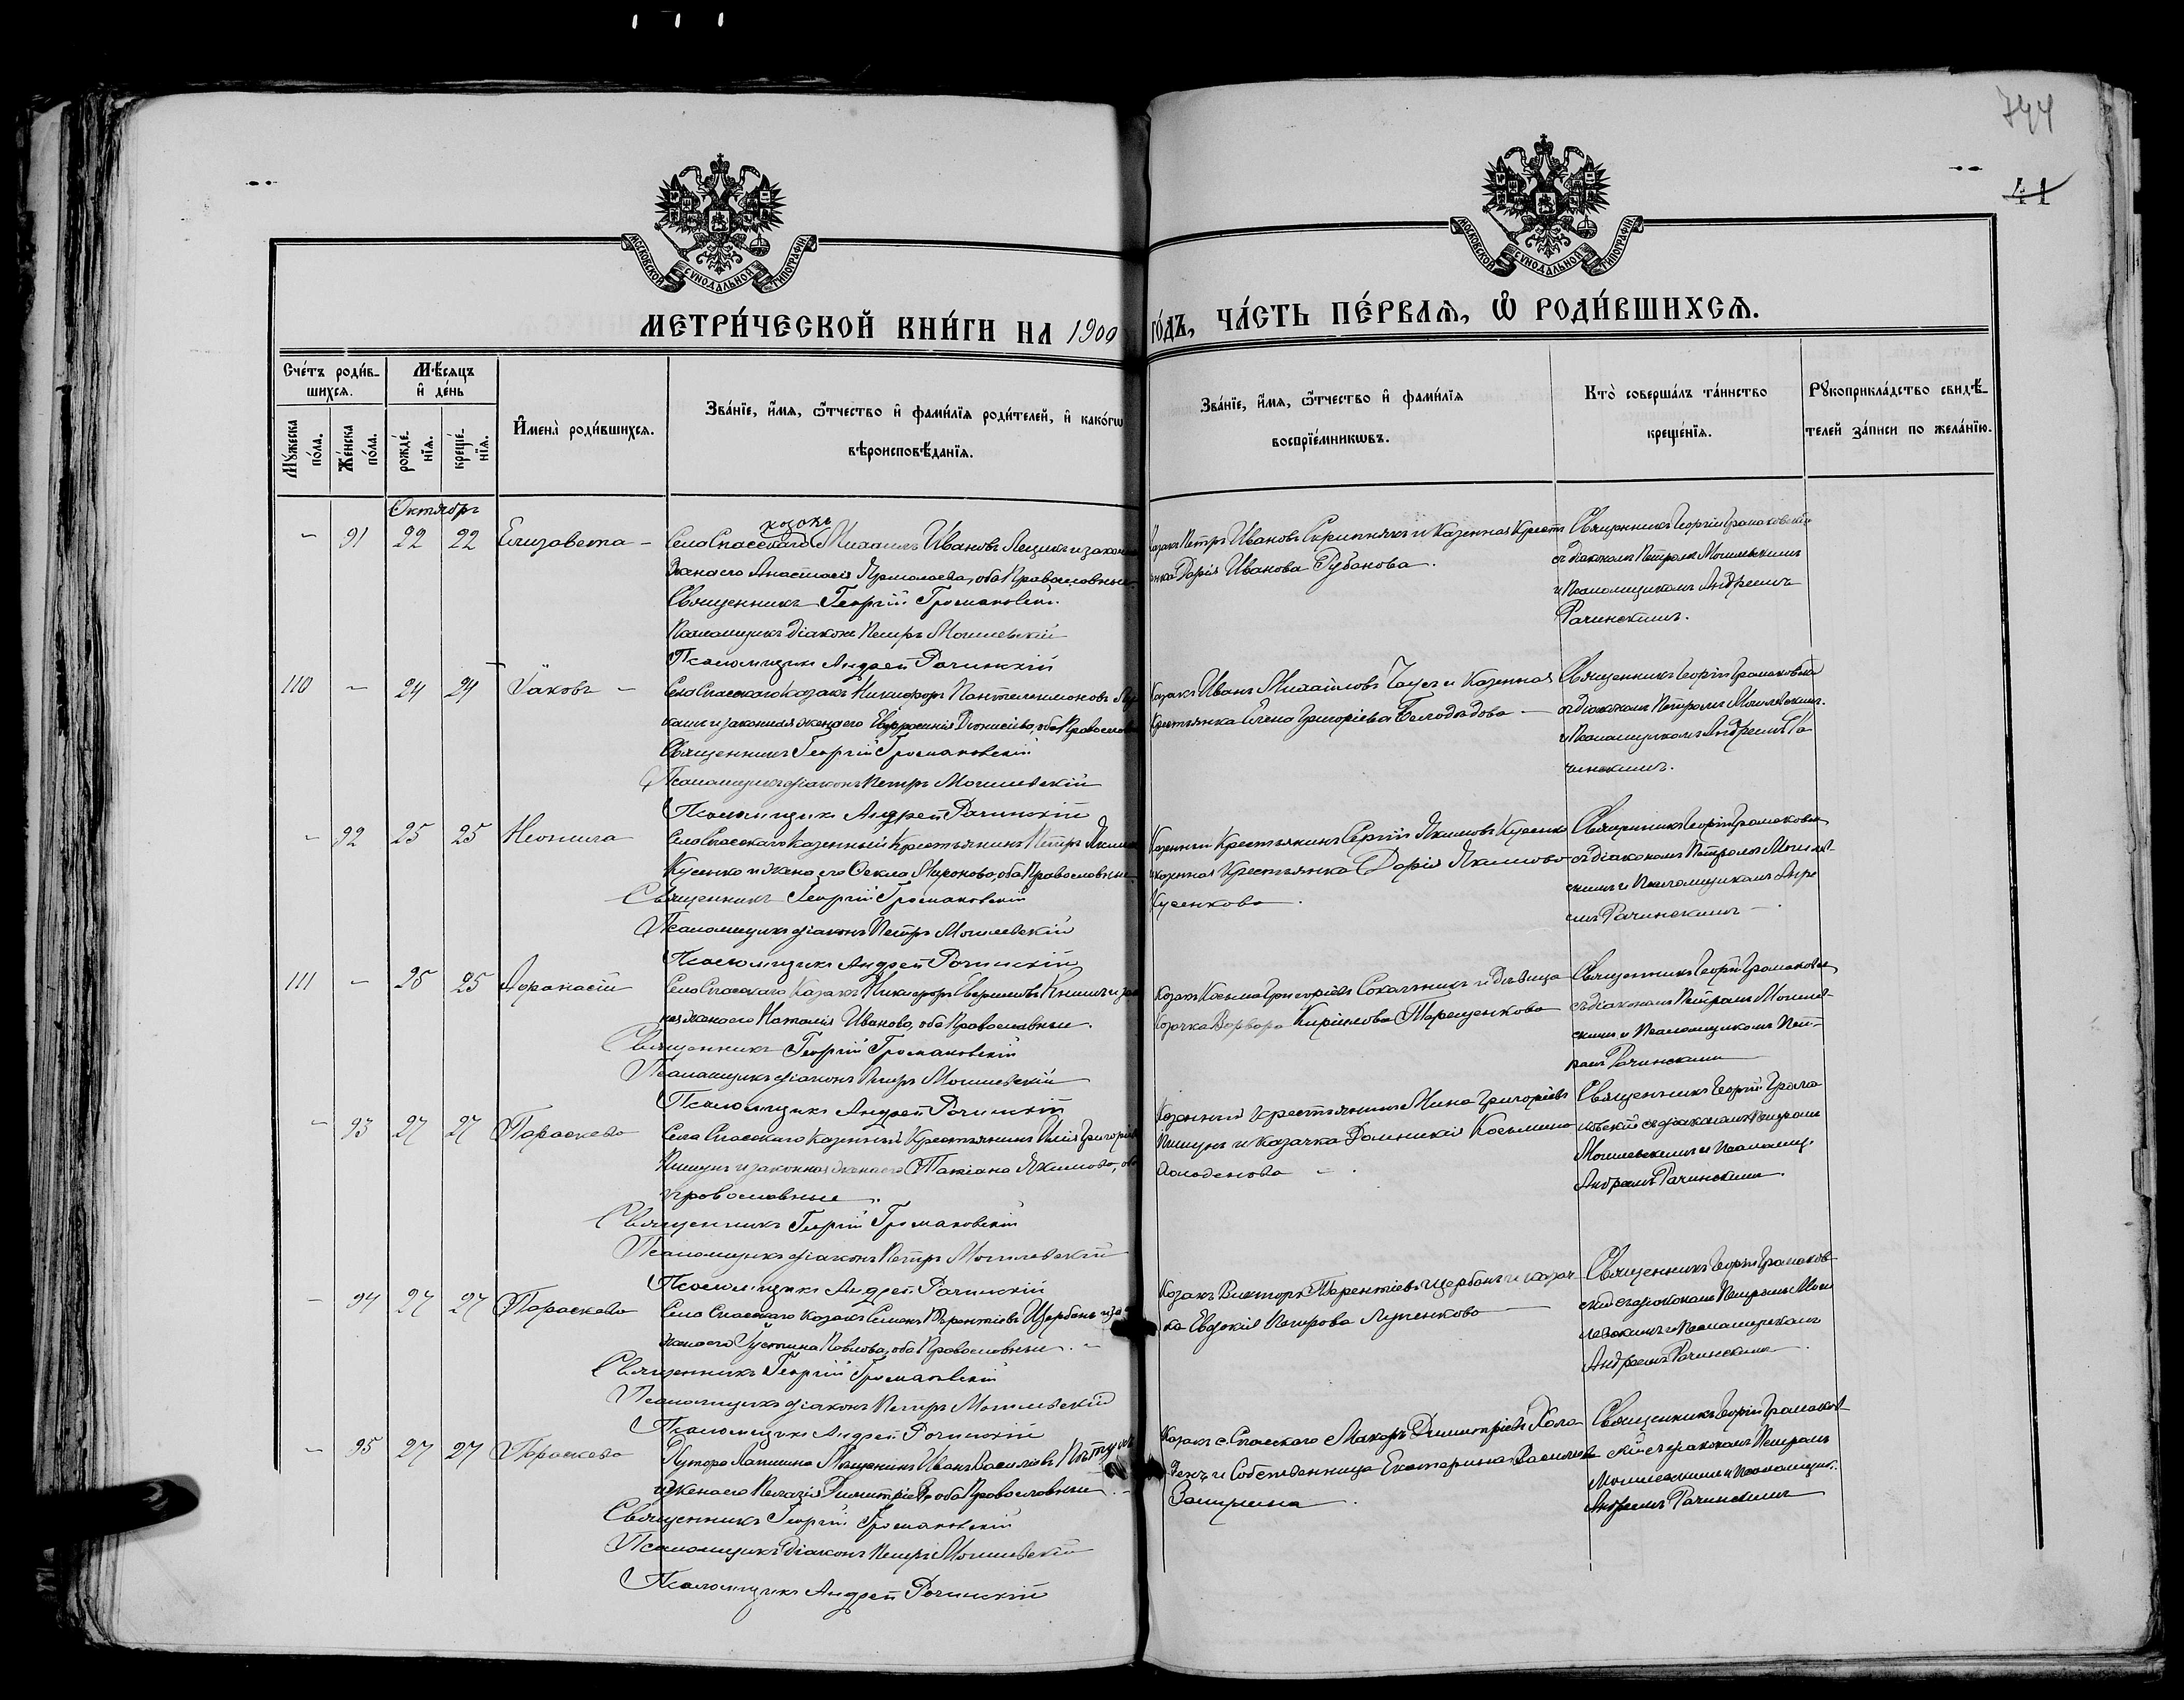 744
41
МОСКОВСКОЙ СѴНОДАЛЬНОЙ ТИПОГРАФІИ
МОСКОВСКОЙ СѴНОДАЛЬНОЙ ТИПОГРАФІИ
МЕТРИ́ЧЕСКОЙ КНИ́ГИ НА 1900 ГО́ДЪ, ЧА́СТЬ ПЕ́РВАѦ, Ѡ҆ РОДИ́ВШИХСѦ.
Сче́тъ роди́в-
шихся.
Мѣ́сяцъ
и҆ де́нь
Мꙋ́жеска
по́ла.
Же́нска
по́ла.
рожде́-
нїя.
креще́-
нїя.
И҆мена̀ роди́вшихся.
Зва́нїе, и҆́мя, ѻ҆́тчество и҆ фами́лїя роди́телей, и҆ како́гѡ
вѣроисповѣ́данїя.
Зва́нїе, и҆́мя, ѻ҆́тчество и҆ фами́лїя
воспрїе́мникѡвъ.
Кто̀ соверша́лъ та́инство
креще́нїя.
Рꙋкоприкла́дство свидѣ́-
телей за́писи по жела́нїю.
Октябрь
- 91 22 22 Елизавета -
козакъ
Села Спасскаго Михаилъ Ивановъ и закон
жена его Анастасія Ярмолаева, оба Православные
Священникъ Георгій Громаковскій
Псаломщикъ діаконъ Петръ Могилевскій
Псаломщикъ Андрей Рачинскій
Казакъ Петръ Ивановъ Скрипникъ и Казенная Крест
янка Дарія Иванова Рубанова.
Священникъ Георгій Громаковскій
съ діакономъ Петромъ Могилевскимъ
и Псаломщикомъ Андреемъ
Рачинскимъ.
110 - 24 24 Іаковъ -
Села Спасскаго Казакъ Никифоръ Пантелеимоновъ
и законная жена его Евфросинія Діонисіева, оба Православн
Священникъ Георгій Громаковскій
Псаломщикъ діаконъ Петръ Могилевскій
Псаломщикъ Андрей Рачинскій
Казакъ Иванъ Михаиловъ и Казенная
Крестьянка Елена Григоріева Белодѣдова -
Священникъ Георгій Громаковскій
съ діакономъ Петромъ Могилевскимъ
и Псаломщикомъ Андреемъ Ра
чинскимъ.
- 92 25 25 Неонила
Села Спасскаго Казенный Крестьянинъ Петръ Якимовъ
Кусенко и жена его Ѳекла Миронова, оба Православные
Священникъ Георгій Громаковскій
Псаломщикъ діаконъ Петръ Могилевскій
Псаломщикъ Андрей Рачинскій
Казенный Крестьянинъ Сергій Якимовъ Кусенко
и казенная Крестьянка Дарія Якимова
Кусенкова.
Священникъ Георгій Громаковскій
съ діакономъ Петромъ Могилев-
скимъ и Псаломщикомъ Андре
емъ Рачинскимъ -
111 - 25 25 Афанасій
Села Спасскаго Казакъ Никифоръ и зак
ная жена его Наталія Иванова, оба Православные.
Священникъ Георгій Громаковскій
Псаломщикъ діаконъ Петръ Могилевскій
Псаломщикъ Андрей Рачинскій
Козакъ Косьма Григоріевъ Сокальникъ и Дѣвица
Козачка Варвара Кирилова Терещенкова
Священникъ Георгій Громаковскій
съ діакономъ Петромъ Могилев-
скимъ и Псаломщикомъ Пет-
ромъ Рачинскимъ
- 93 27 27 Параскева
Села Спасскаго Казенный Крестьянинъ Илія Григоріевъ
и законная жена его Татіана Якимова, оба
православные.
Священникъ Георгій Громаковскій
Псаломщикъ діаконъ Петръ Могилевскій
Псаломщикъ Андрей Рачинскій
Казенный Крестьянинъ Мина Григоріевъ
и Казачка Домникія Косьмина
Холоденова -
Священникъ Георгій Грома
ковскій съ діакономъ Петромъ
Могилевскимъ и Псаломщ.
Андреемъ Рачинскимъ.
- 94 27 27 Параскева
Села Спасскаго Козакъ Семенъ Терентіевъ Щербань и зак
жена его Устина Павлова, оба Православные. -
Священникъ Георгій Громаковскій
Псаломщикъ діаконъ Петръ Могилевскій
Псаломщикъ Андрей Рачинскій
Козакъ Викторъ Терентіевъ Щербань и казач
ка Евдокія Петрова Луценкова
Священникъ Георгій Громаков
скій съ діакономъ Петромъ Моги
левскимъ и Псаломщикомъ
Андреемъ Рачинскимъ.
- 95 27 27 Параскева
Хутора Лапшина Мещанинъ Иванъ Василіевъ
и жена его Пелагія Димитріева, оба Православные. -
Священникъ Георгій Громаковскій
Псаломщикъ Діаконъ Петръ Могилевскій
Псаломщикъ Андрей Рачинскій
Казакъ с. Спасскаго Макаръ Димитріевъ Холо
денъ и Собственница Екатерина Василіева
Священникъ Георгій Громаков-
скій съ діакономъ Петромъ
Могилевскимъ и Псаломщик.
Андреемъ Рачинскимъ